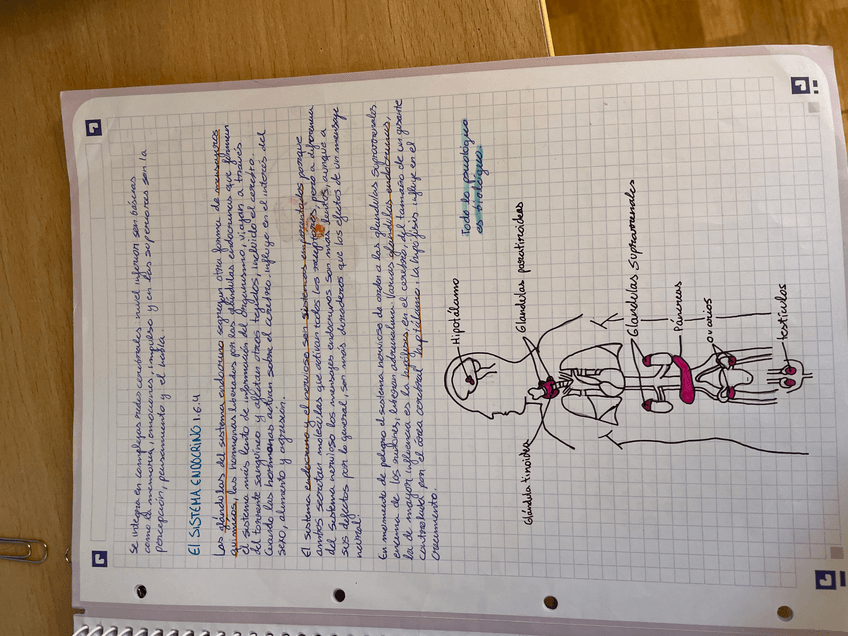 Se integra en complejas redes corticales nivel inferior son básicas
como la memoria, emociones, impulso y en las superiores son la
percepción, pensamiento y el habla.
El SISTEMA ENDOCRINO 1.6.4
Las glándulas del sistema endocrino segregan otra forma de mensajeros
químicos, las hormonas liberadas por las glándulas endocrinas que forman
el sistema más lento de información del organismo, viajan a través
del torrente sanguíneo y afectan otros tejidos, incluido el cerebro.
Cuando las hormonas actúan sobre el cerebro. Influye en el interés del
sexo, alimento y agresión.
El sistema endocrino y el nervioso son sistemas emparentados porque
ambos secretan moléculas que activan todos los receptores, pero a diferencia
del sistema nervioso los mensajes endocrinos son más lentos, aunque a
sus efectos por lo general, son más duraderos que los efectos de un mensaje
neural
En momento de peligro el sistema nervioso da orden a las glándulas suprarrenales
encima de los riñones, liberen adrenalina. Varias glándulas endocrinas,
la de mayor influencia es la hipófisis, en el cerebro, del tamaño de un guisante
controlada por el área cerebral, hiptálamo. La hipófisis influye en el
crecimiento.
Todo lo psicológico
es biológico.
Hipotálamo
Glándulas paratiroideas
Glándula tiroidea
Glándulas suprarrenales
Páncreas
ovarios
testículos